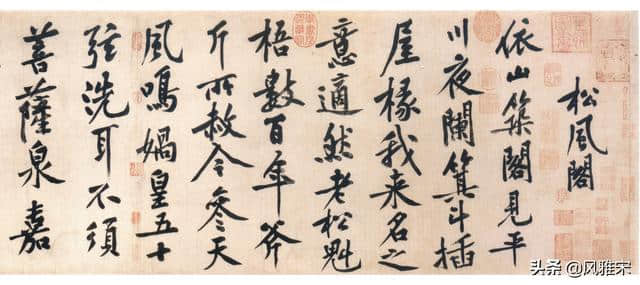 松風閣
依山築閣見平
川夜闌箕斗插
屋椽我来名之
意適然老松魁
梧數百年斧
斤所赦今參天
風鳴媧皇五十
弦洗耳不須
菩薩泉嘉
头条 @风雅宋